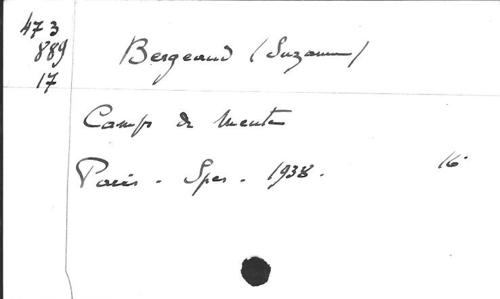 473
889
17
Bergeaud (Suzanne)
Camp de
Paris - Spes - 1938.
16°